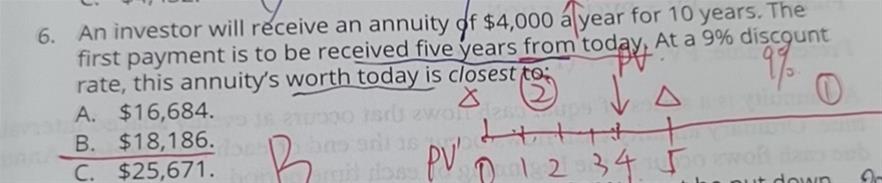 6. An investor will receive an annuity of $4,000 a year for 10 years. The
first payment is to be received five years from today. At a 9% discount
rate, this annuity's worth today is closest to:
A. $16,684.
B. $18,186.
C. $25,671.
PV
9%
②
①
B
PV'
0 1 2 3 4 5